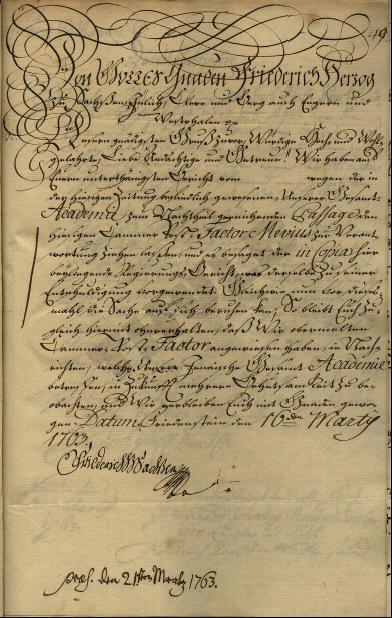 49
Von Gottes Gnaden Friederich Herzog
zu Sachßen, Jülich, Cleve und Berg auch Engern und
Westphalen
Unsern gnädigsten Gruß zuvor, Würdige Hoch- und Wohl-
gelahrte, Liebe Andächtige und Getreue! Wir haben aus
Euerm unterthänigsten Bericht vom wegen der in
der hiesigen Zeitung befindlich gewesenen, Unserer Gesamt-
Academie zum Nachtheil gereichenden Passage den
hiesigen Cammer Post-Factor Mevius zur Verant-
wortung ziehen lassen, und es besaget der in Copia hier
beyliegende Regierungs-Bericht, was derselbe zu seiner
Entschuldigung vorgewendet. Gleichwie nun vor dieses
mahl die Sache auf sich beruhen kan, So bleibt Euch zu-
gleich hiermit ohnverhalten, daß Wir obermelten
Cammer-Post-Factor angewiesen haben, in Nach-
richten, welche Unsere Jenaische Gesamt Academie
betreffen, in Zukunfft mehrere Behutsamkeit zu be-
obachten, und Wir verbleiben Euch mit Gnaden gewo-
gen. Datum Friedenstein den 16den Martij
1763.
Friederich HzSachsen
præs. den 21sten Mertz 1763.